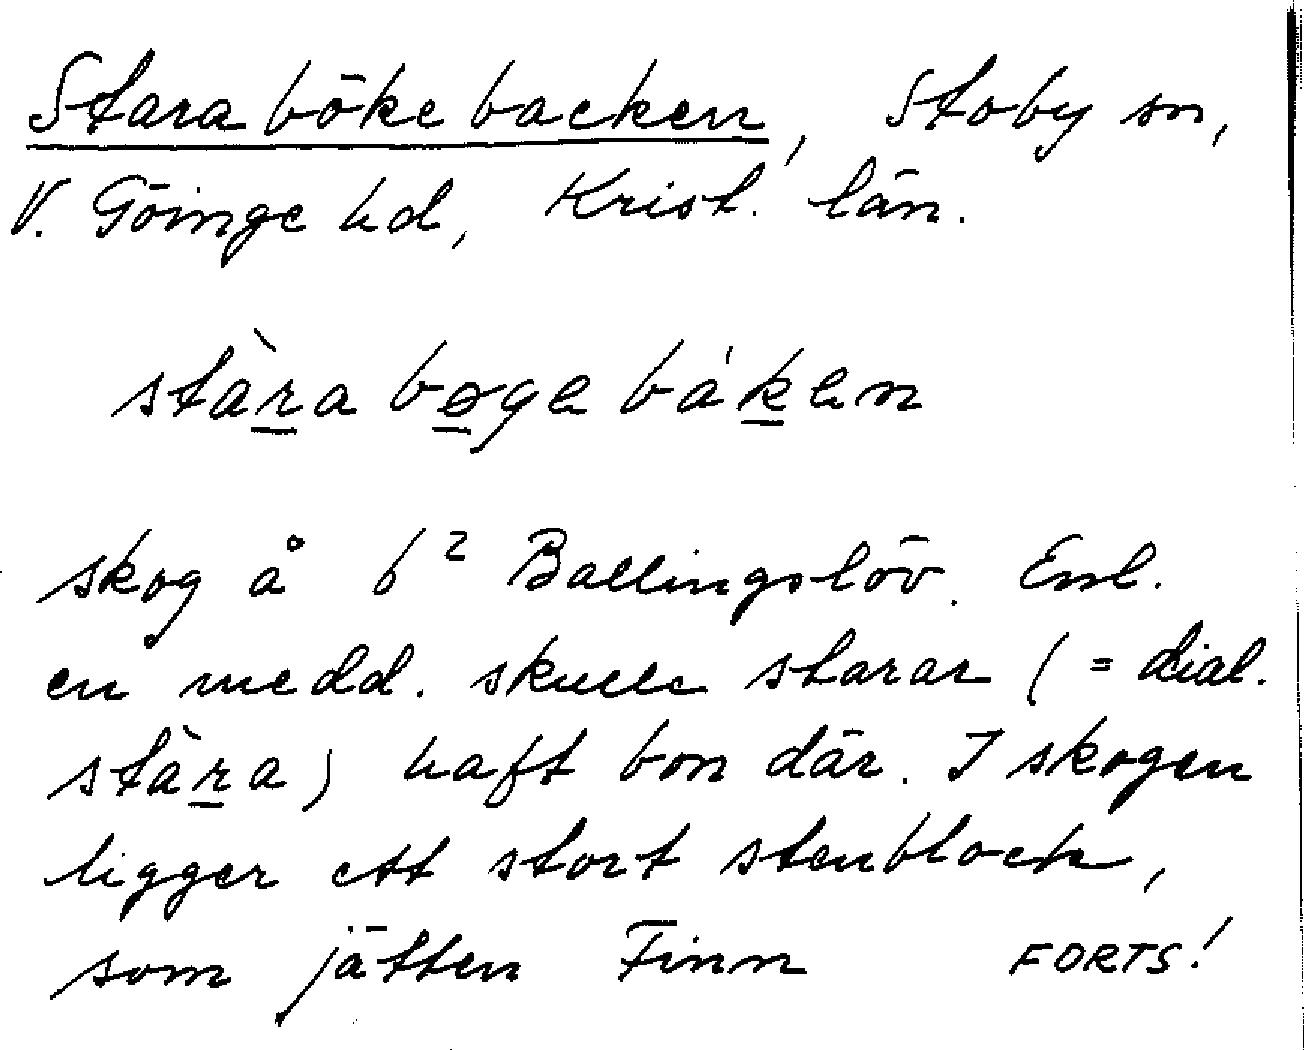 Stara böke backen, Stoby sn,
V. Göinge hd, Krist. län.
stàra bøge báken
skog å b² Ballingslöv. Enl.
en medd. skulle starar (= dial.
stàra) haft bon där. I skogen
ligger ett stort stenblock,
som jätten Finn FORTS!